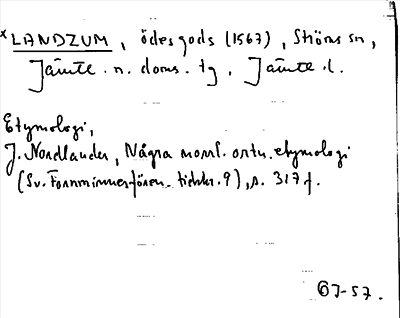 *LANDZUM, ödesgods (1567), Ströms sn,
Jämte. n. doms. tg, Jämte. l.
Etymologi,
J. Nordlander, Några norrl. ortn. etymologi
(Sv. Fornminnesfören. tidskr. 9), s. 317 f.
OJ-57.